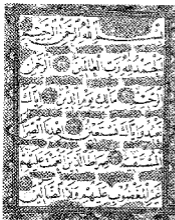 بسم الله الرحمن الرحيم
الحمد لله رب العالمين الرحمن
الرحيم مالك يوم الدين إياك
نعبد وإياك نستعين اهدنا الصراط
المستقيم صراط الذين أنعمت عليهم
غير المغضوب عليهم ولا الضالين